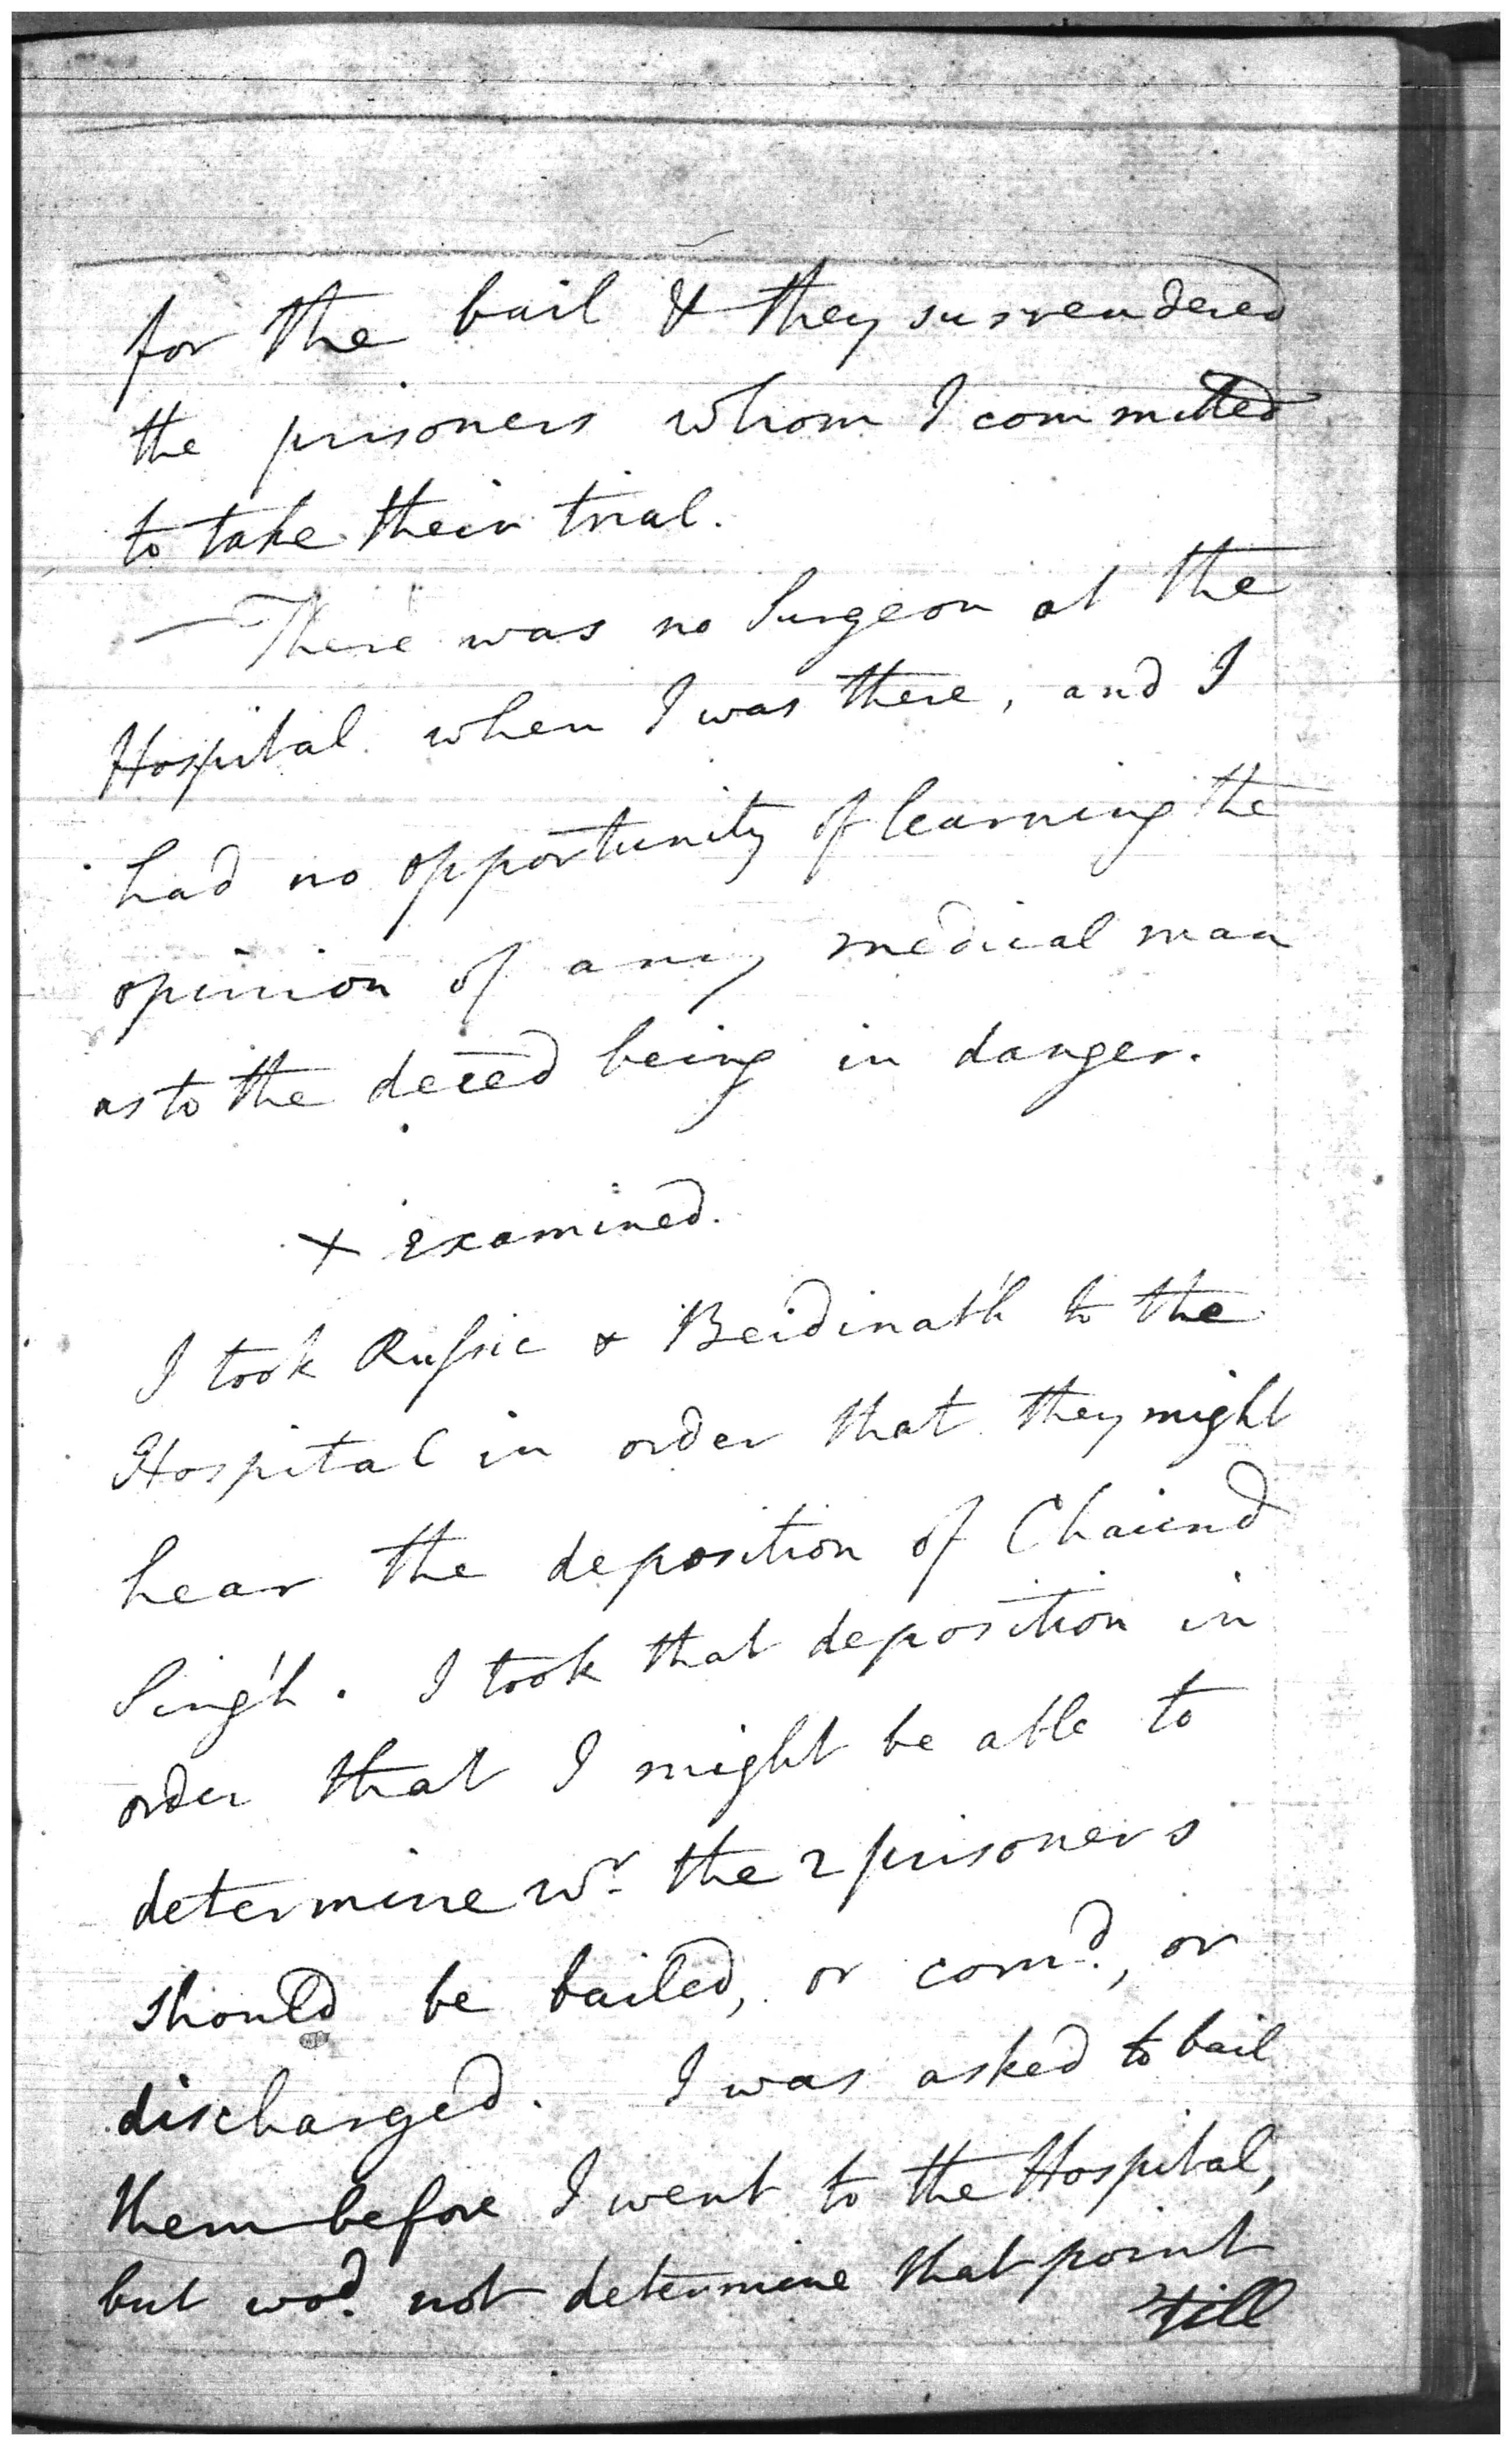 for the bail & they surrendered
the prisoners whom I committed
to take their trial.
— There was no Surgeon at the
Hospital when I was there, and I
had no opportunity of learning the
opinion of any medical man
as to the deced being in danger.
× examined.
I took Rufsic & Beidinath to the
Hospital in order that they might
hear the deposition of Chaiend
Singh. I took that deposition in
order that I might be able to
determine wr. the 2 prisoners
should be bailed, or comd., or
discharged. I was asked to bail
them before I went to the Hospital,
but wod. not determine that point
till